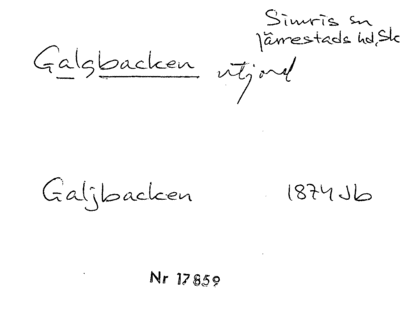 Simris sn
Järrestads hd, Sk
Galgbacken utjord
Galjbacken 1874 Jb
Nr 17859